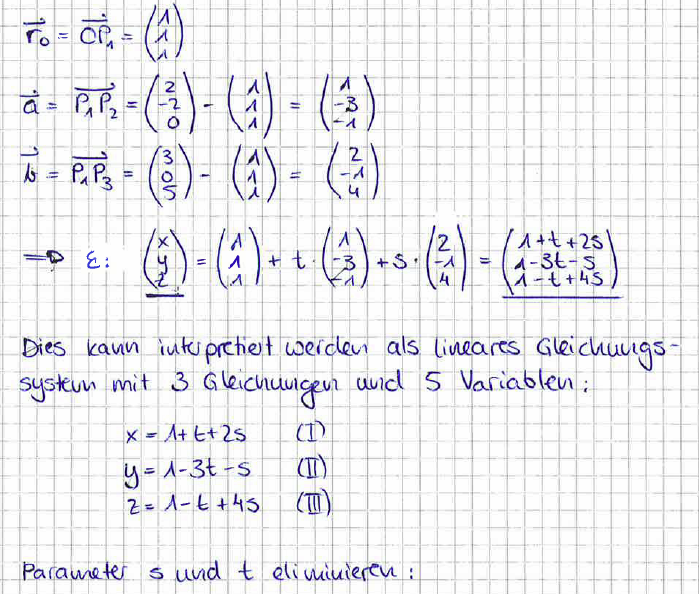 r⃗₀ = OP⃗₁ = (1 1 1)
a⃗ = P₁P₂⃗ = (2 -2 0) - (1 1 1) = (1 -3 -1)
b⃗ = P₁P₃⃗ = (3 0 5) - (1 1 1) = (2 -1 4)
⇒ ε: (x y z) = (1 1 1) + t · (1 -3 -1) + s · (2 -1 4) = (1+t+2s 1-3t-s 1-t+4s)
Dies kann interpretiert werden als lineares Gleichungs-
system mit 3 Gleichungen und 5 Variablen:
x = 1+t+2s (I)
y = 1-3t-s (II)
z = 1-t+4s (III)
Parameter s und t eliminieren: